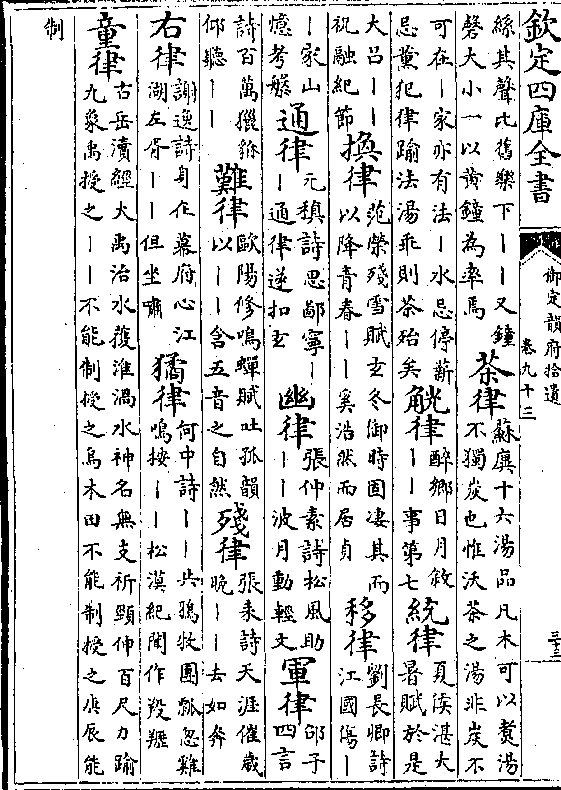 欽定四庫全書
御定韻府拾遺
卷九十三
絲其聲比舊樂下丨丨又鐘
磬大小一以黄鐘為率焉
茶律
蘇廙十六湯品凡木可以煑湯
不獨炭也惟沃茶之湯非炭不
可在丨家亦有法丨水忌停薪
忌薫犯律踰法湯乖則茶殆矣
觥律
醉鄉日月敘
丨丨事第七
統律
夏侯湛大
暑賦於是
大呂丨丨
祝融紀節
換律
范榮殘雪賦玄冬御時固凄其而
以降青春丨丨奚浩然而居貞
移律
劉長卿詩
江國傷丨
丨家山
憶考槃
通律
元稹詩思鄙寧丨
丨通律逆扣玄
幽律
張仲素詩松風助
丨丨波月動輕文
軍律
邵子
四言
詩百萬貔貅
仰聽丨丨
難律
歐陽修鳴蟬賦吐孤韻
以丨丨含五音之自然
殘律
張耒詩天涯催歲
晚丨丨去如奔
右律
謝逸詩身在幕府心江
湖左胥丨丨但坐嘯
獝律
何中詩丨丨共鴉牧團瓢忽雞
鳴按丨丨松漠紀聞作
童律
古岳瀆經大禹治水獲淮渦水神名無支祈頸伸百尺力踰
九象禹授之丨丨不能制授之烏木田不能制授之庚辰能
制